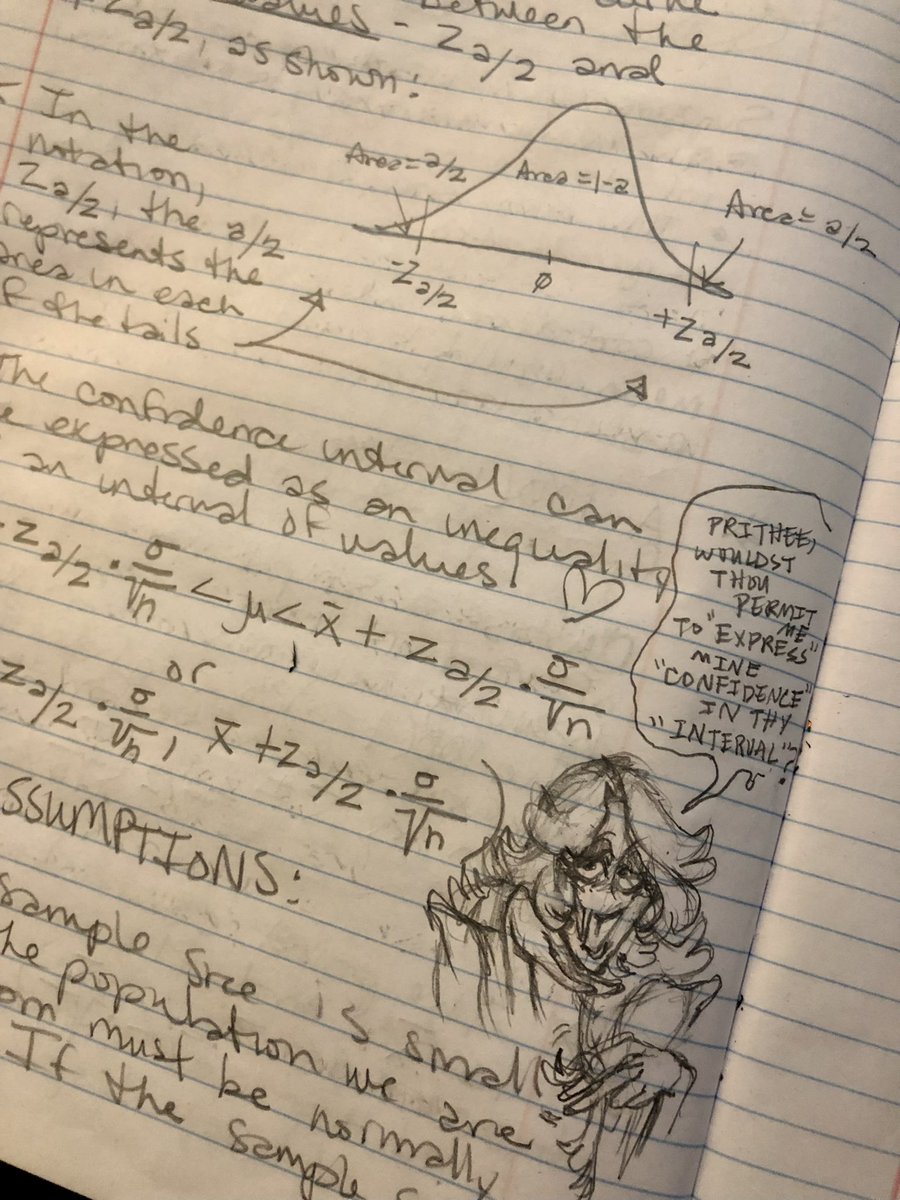 values - between the
+Z a/2, as shown:
- Z a/2 and
In the
notation,
Z a/2, the a/2
represents the
area in each
of the tails
Area = a/2
Area = 1-a
Area = a/2
-Z a/2
0
+Z a/2
The confidence interval can
be expressed as an inequality
an interval of values!
Z a/2 · σ/√n < μ < x̄ + Z a/2 · σ/√n
or
Z a/2 · σ/√n, x̄ + Z a/2 · σ/√n)
PRITHEE,
WOULDST
THOU
PERMIT
ME
TO "EXPRESS"
MINE
"CONFIDENCE"
IN THY
"INTERVAL"?
ASSUMPTIONS:
sample size is small
the population we are
from must be normally
If the sample